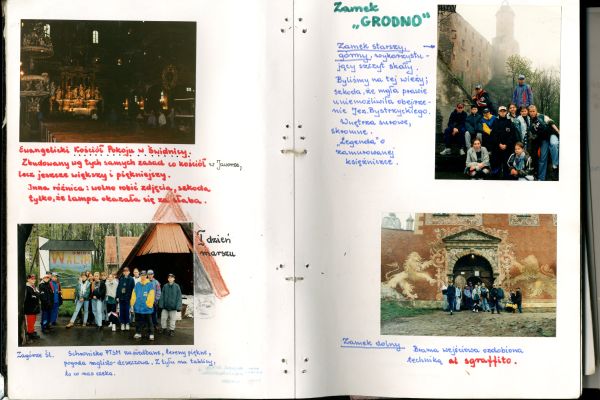 Evangelicki Kościół Pokoju w Świdnicy.
Zbudowany wg tych samych zasad co kościół w Jaworze,
lecz jeszcze większy i piękniejszy.
Inna różnica: wolno robić zdjęcia, szkoda
tylko, że lampa okazała się za słaba.
I dzień
marszu
Zagórze Śl.
Schronisko PTSM zaniedbane, tereny piękne,
pogoda mglisto-deszczowa. Z tyłu na tablicy,
to w nas czeka.
Zamek
„GRODNO"
Zamek starszy,
górny, wykorzystu-
jący szczyt skały.
Byliśmy na tej wieży;
szkoda, że mgła prawie
uniemożliwiła obejrze-
nie Jez. Bystrzyckiego.
Wnętrza surowe,
skromne.
„Legenda" o
zamurowanej
księżniczce.
Zamek dolny.
Brama wejściowa ozdobiona
techniką al sgraffito.